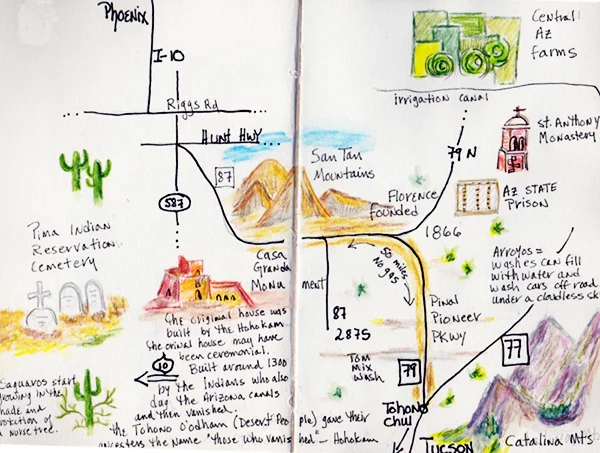 Phoenix
I-10
Riggs Rd
Hunt Hwy
87
587
San Tan
Mountains
Central
Az
Farms
irrigation canal
79 N
St. Anthony
Monastery
AZ STATE
PRISON
Florence
Founded
1866
Pima Indian
Reservation
Cemetery
Casa
Grande
Monument
50 miles
No gas
Arroyos =
washes can fill
with water and
wash cars off road
under a cloudless sk
87
2875
Pinal
Pioneer
PKWY
Tom
Mix
Wash
79
77
The original house was
built by the Hohokam.
The orival house may have
been ceremonial.
Built around 1300
by the Indians who also
dug the Arizona canals
and then vanished.
10
Saguaros start
growing in the
hade and
rotection of
a nurse tree.
The Tohono O'odham (Desert People) gave their
ancesters the name "Those who vanished" - Hohokam
Tohono
Chul
Tucson
Catalina Mts